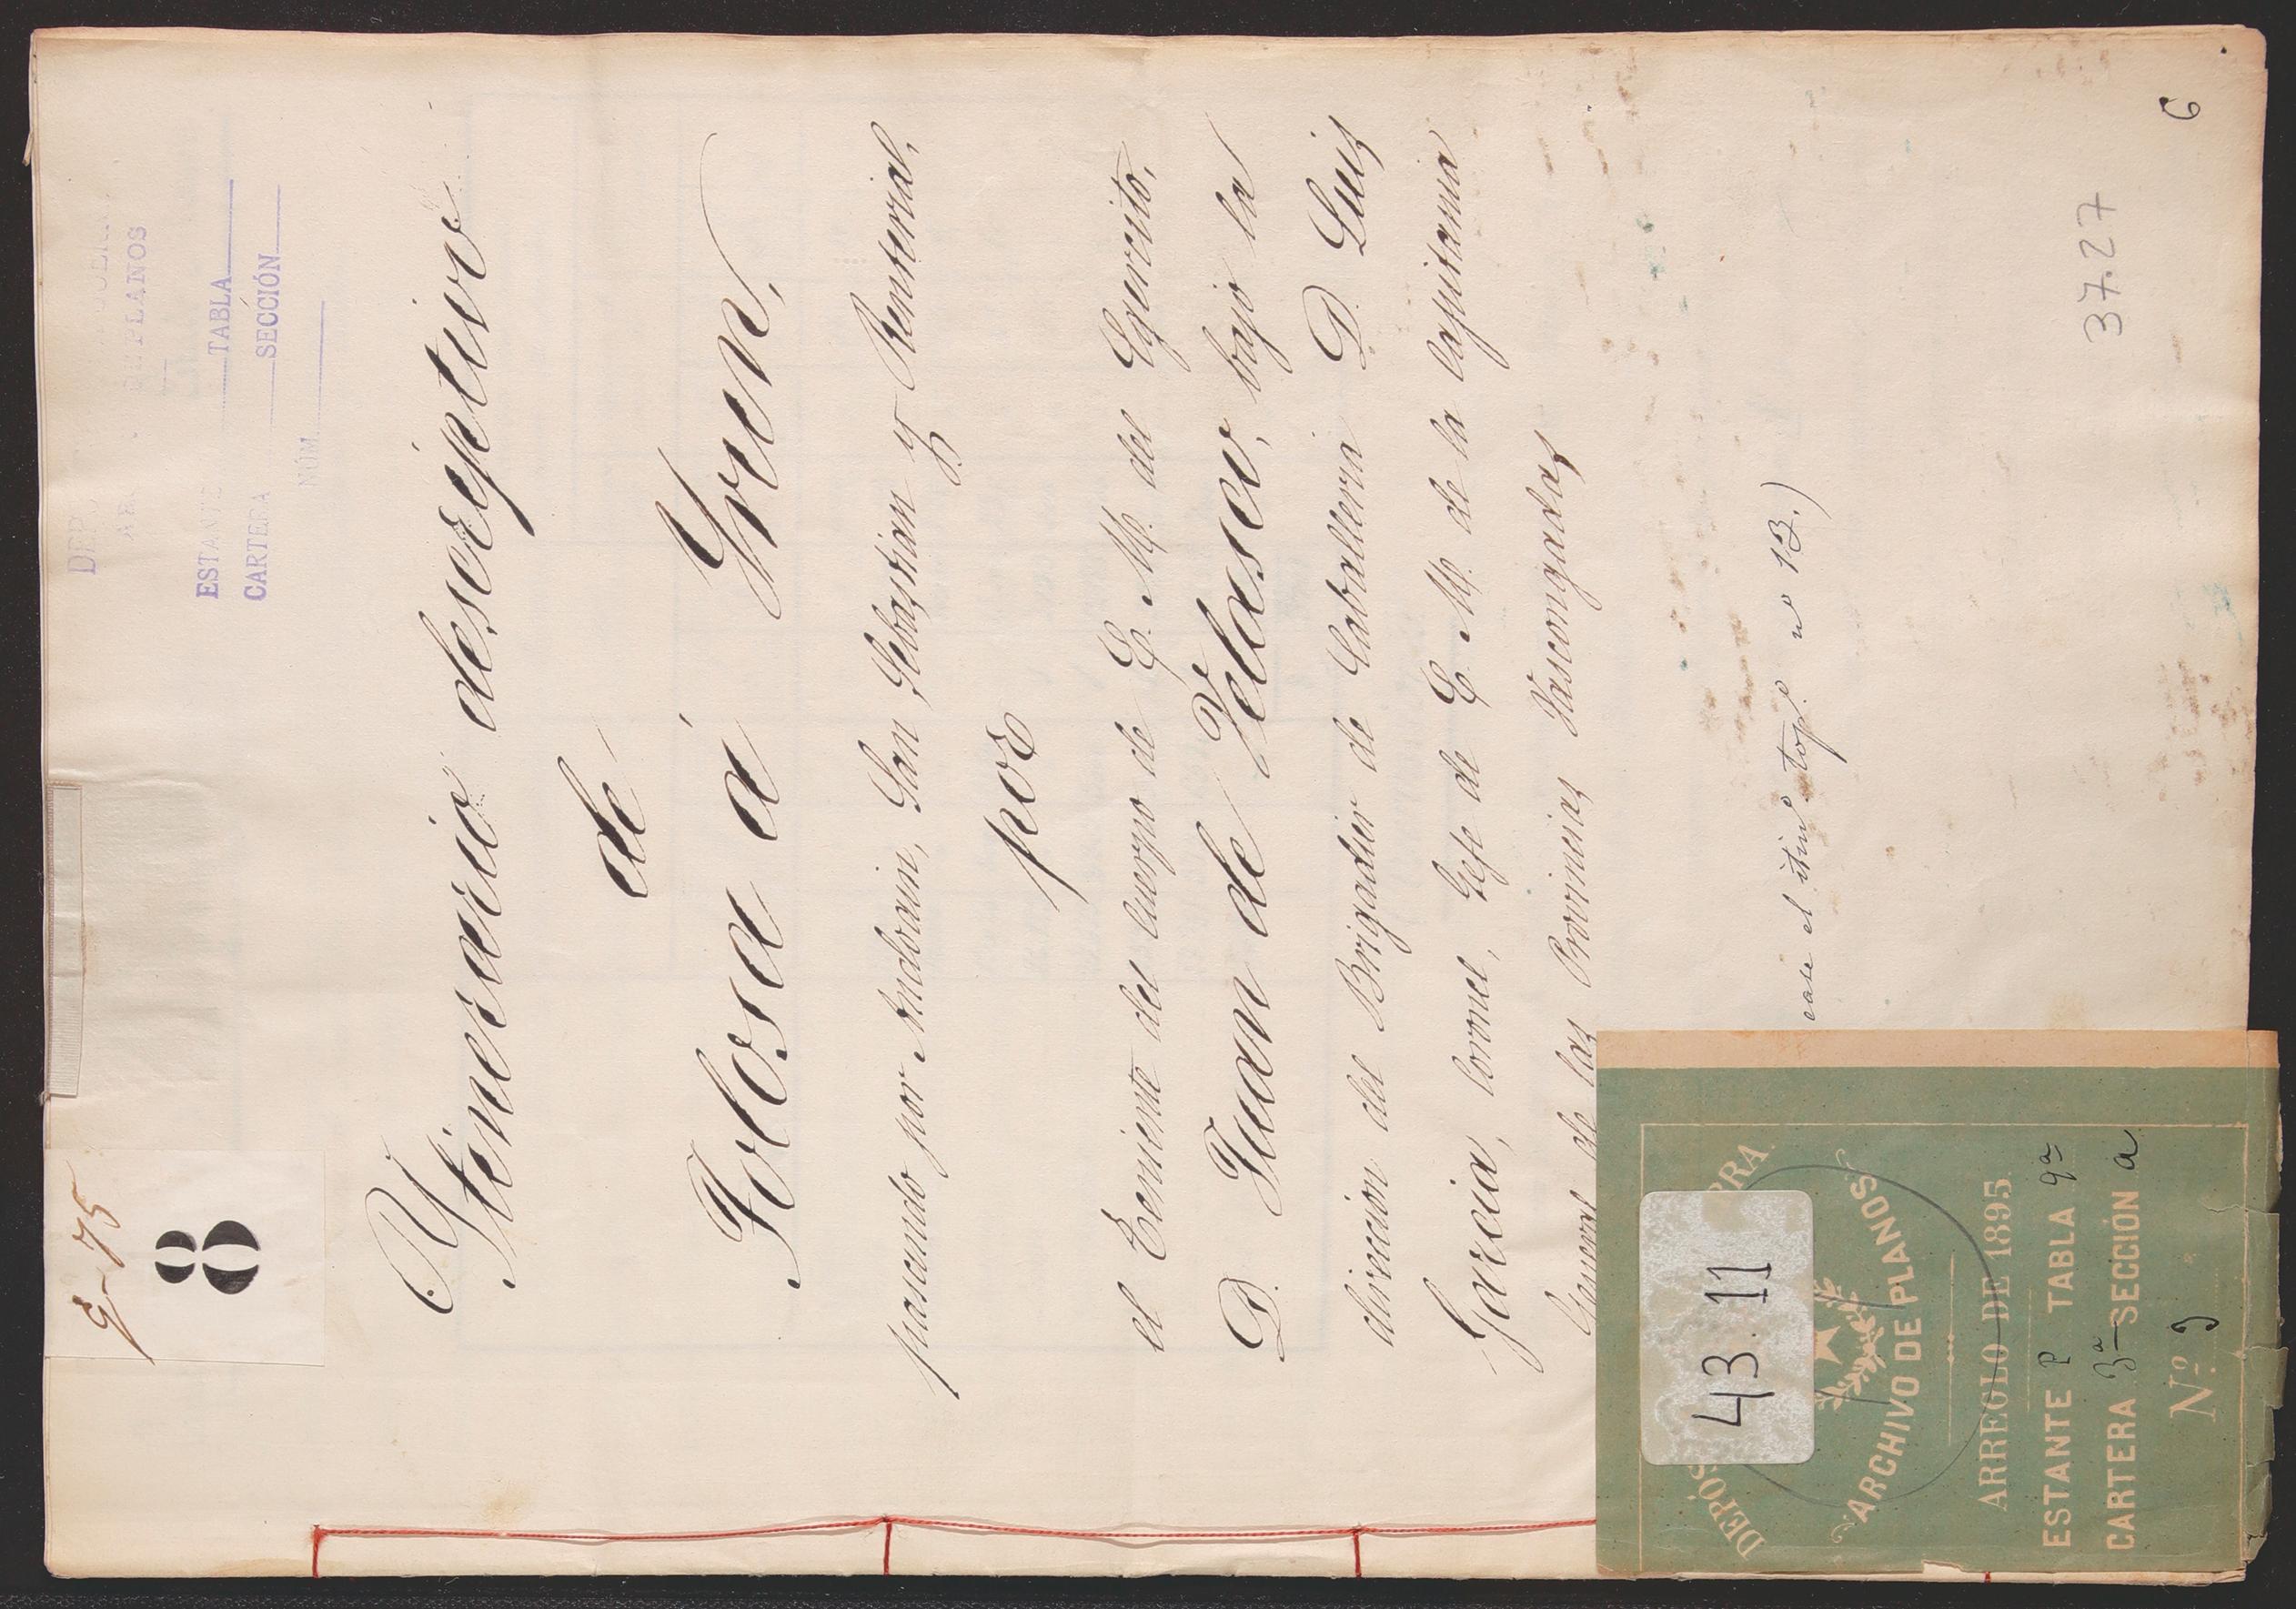 9-75
8
ESTANTE TABLA
CARTERA SECCIÓN
NÚM.
DE PLANOS
Ytinerario descriptivo
de
Tolosa á Yrun,
pasando por Andoain, San Sebastian y Renteria,
por
el Teniente del Cuerpo de E. M. del Egercito,
D. Juan de Velasco, bajo la
direccion del Brigadier de Caballeria D. Luis
Garcia, Coronel, Gefe de E. M. de la Capitania
General de las Provincias Vascongadas
el itino. topo. no 13.)
37.27
6
43.11
ARCHIVO DE PLANOS
ARREGLO DE 1895
ESTANTE P TABLA 9ª
CARTERA 3ª SECCIÓN a
Nº 9